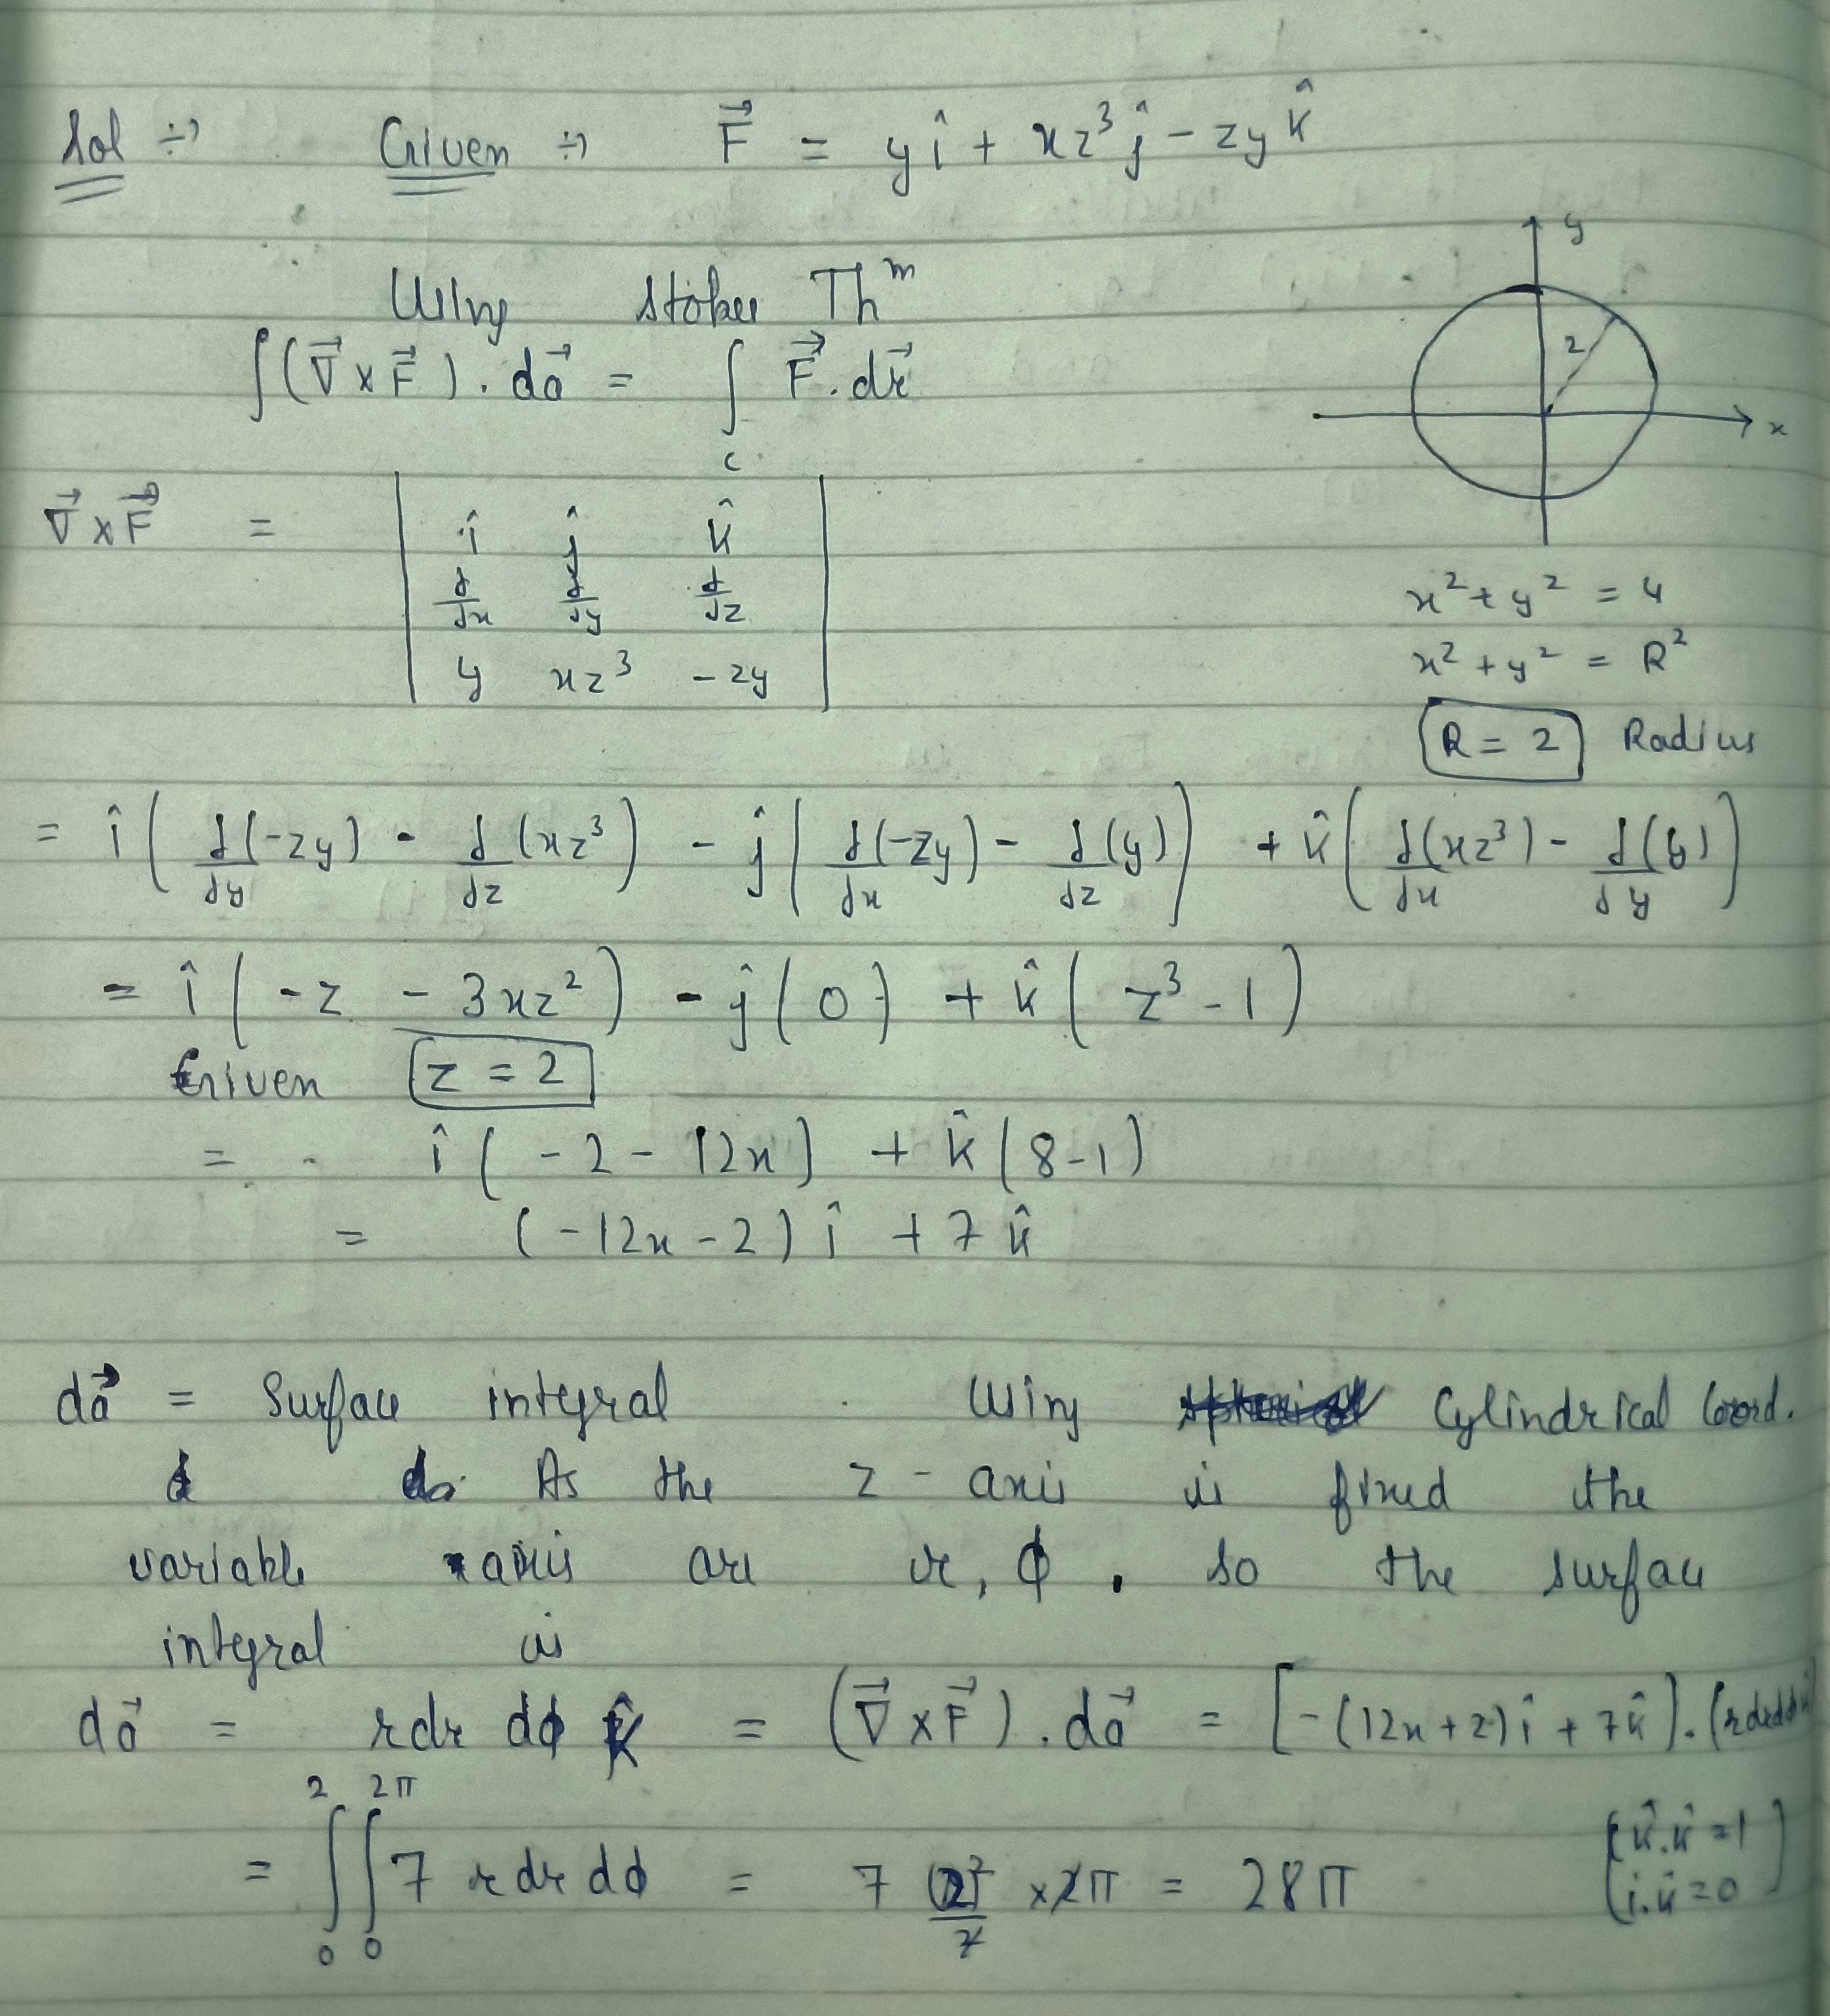 Sol ÷→ Given ÷→ F⃗ = yî + xz³ĵ - zyk̂
Using Stokes Thᵐ
∫(∇⃗×F⃗).da⃗ = ∫_c F⃗.dr⃗
y
2
x
∇⃗×F⃗ = | î ĵ k̂
∂/∂x ∂/∂y ∂/∂z
y xz³ -zy |
x² + y² = 4
x² + y² = R²
R = 2 Radius
= î(∂(-zy)/∂y - ∂(xz³)/∂z) - ĵ(∂(-zy)/∂x - ∂(y)/∂z) + k̂(∂(xz³)/∂x - ∂(y)/∂y)
= î(-z - 3xz²) - ĵ(0) + k̂(z³-1)
Given z = 2
= î(-2-12x) + k̂(8-1)
= (-12x-2)î + 7k̂
da⃗ = Surface integral Using Cylindrical Coord.
As the z-axis is fixed the
variable axis are r, ϕ. so the surface
integral is
da⃗ = rdr dϕ k̂ = (∇⃗×F⃗).da⃗ = [-(12x+2)î + 7k̂].(rdrdϕk̂)
= ∫₀² ∫₀^2π 7 rdr dϕ = 7 (2)²/2 × 2π = 28π
[k̂.k̂=1
i.k̂=0]